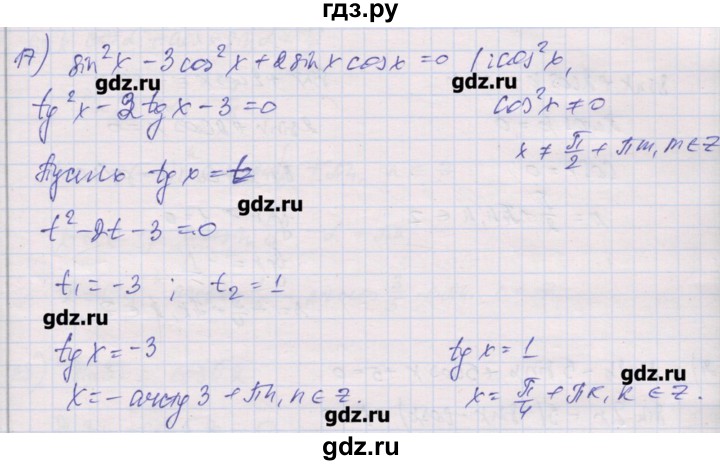 гдз.ру
17) sin²x - 3cos²x + 2sinx cosx = 0 | : cos²x,
gdz.ru gdz.ru
tg²x - 2tgx - 3 = 0 cos²x ≠ 0
x ≠ π/2 + πm, m ∈ Z
Пусть tg x = t
gdz.ru
t² - 2t - 3 = 0
t₁ = -3 ; t₂ = 1
gdz.ru
tg x = -3 tg x = 1
gdz.ru
x = -arctg 3 + πn, n ∈ Z. x = π/4 + πk, k ∈ Z.
gdz.ru